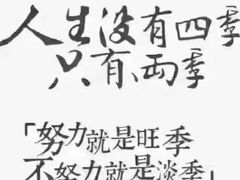 人生没有四季
只有两季
「努力就是旺季
不努力就是淡季」